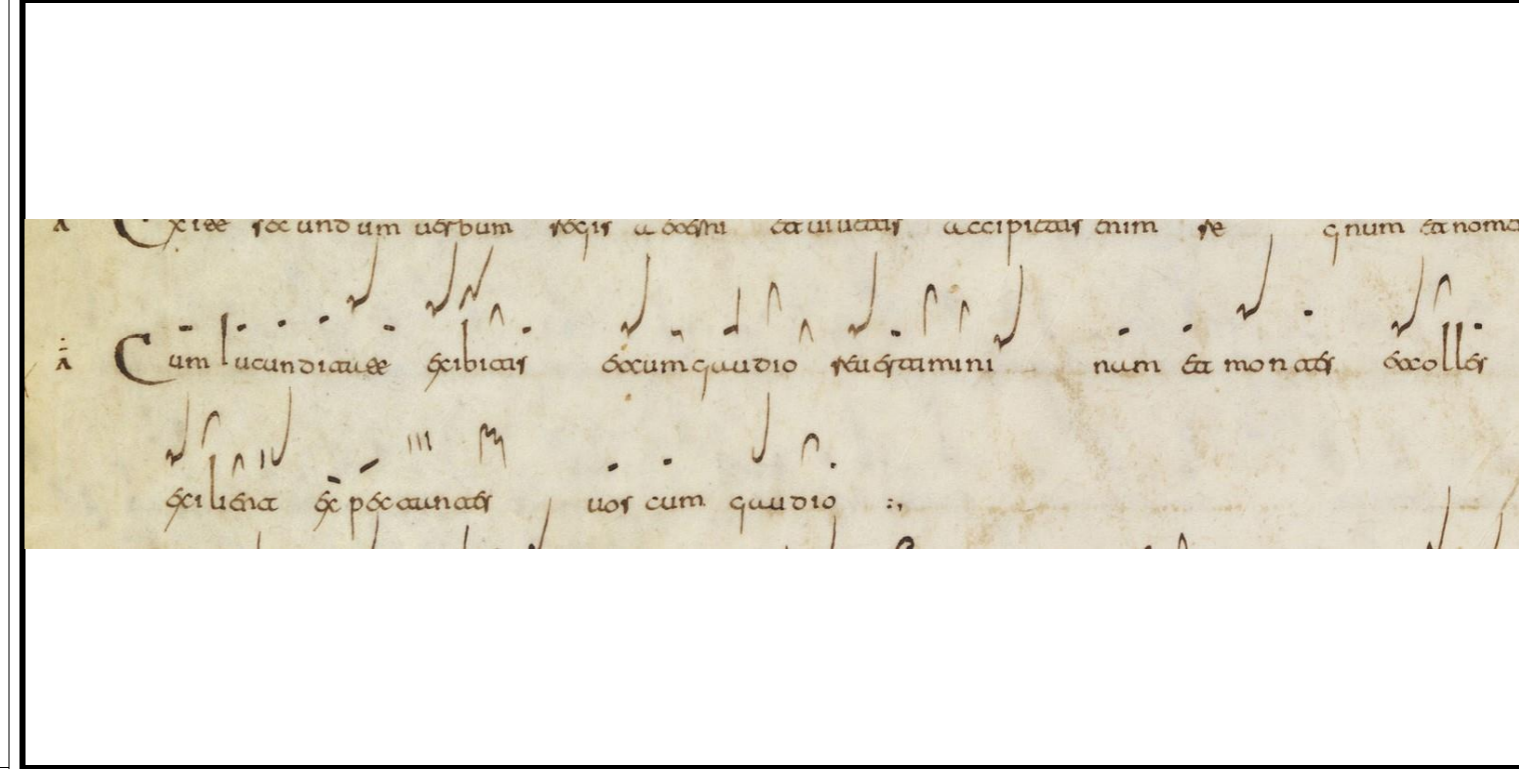 Exite secundum uerbum regis aeterni et uiuetis accipietis enim re gnum et nome
A Cum Iucunditate exibitis et cum gaudio reuertimini nam et montes et colles
exilient expectantes uos cum gaudio :,